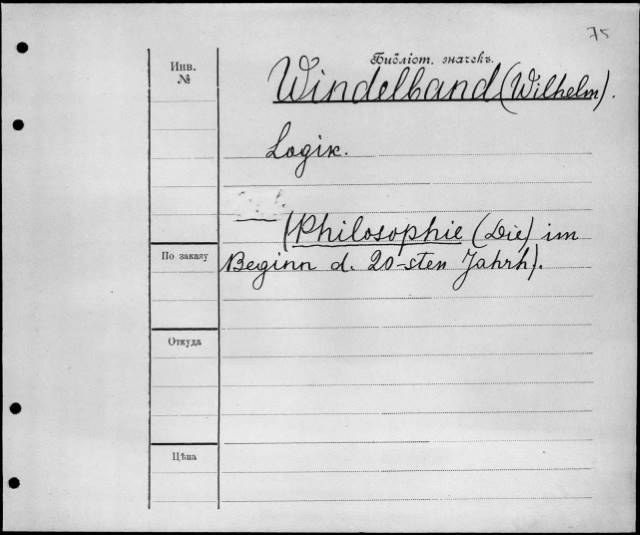 75
Инв.
№
Библіот. значекъ.
Windelband (Wilhelm).
Logik.
(Philosophie (Die) im
По заказу
Beginn d. 20-sten Jahrh).
Откуда
Цѣна